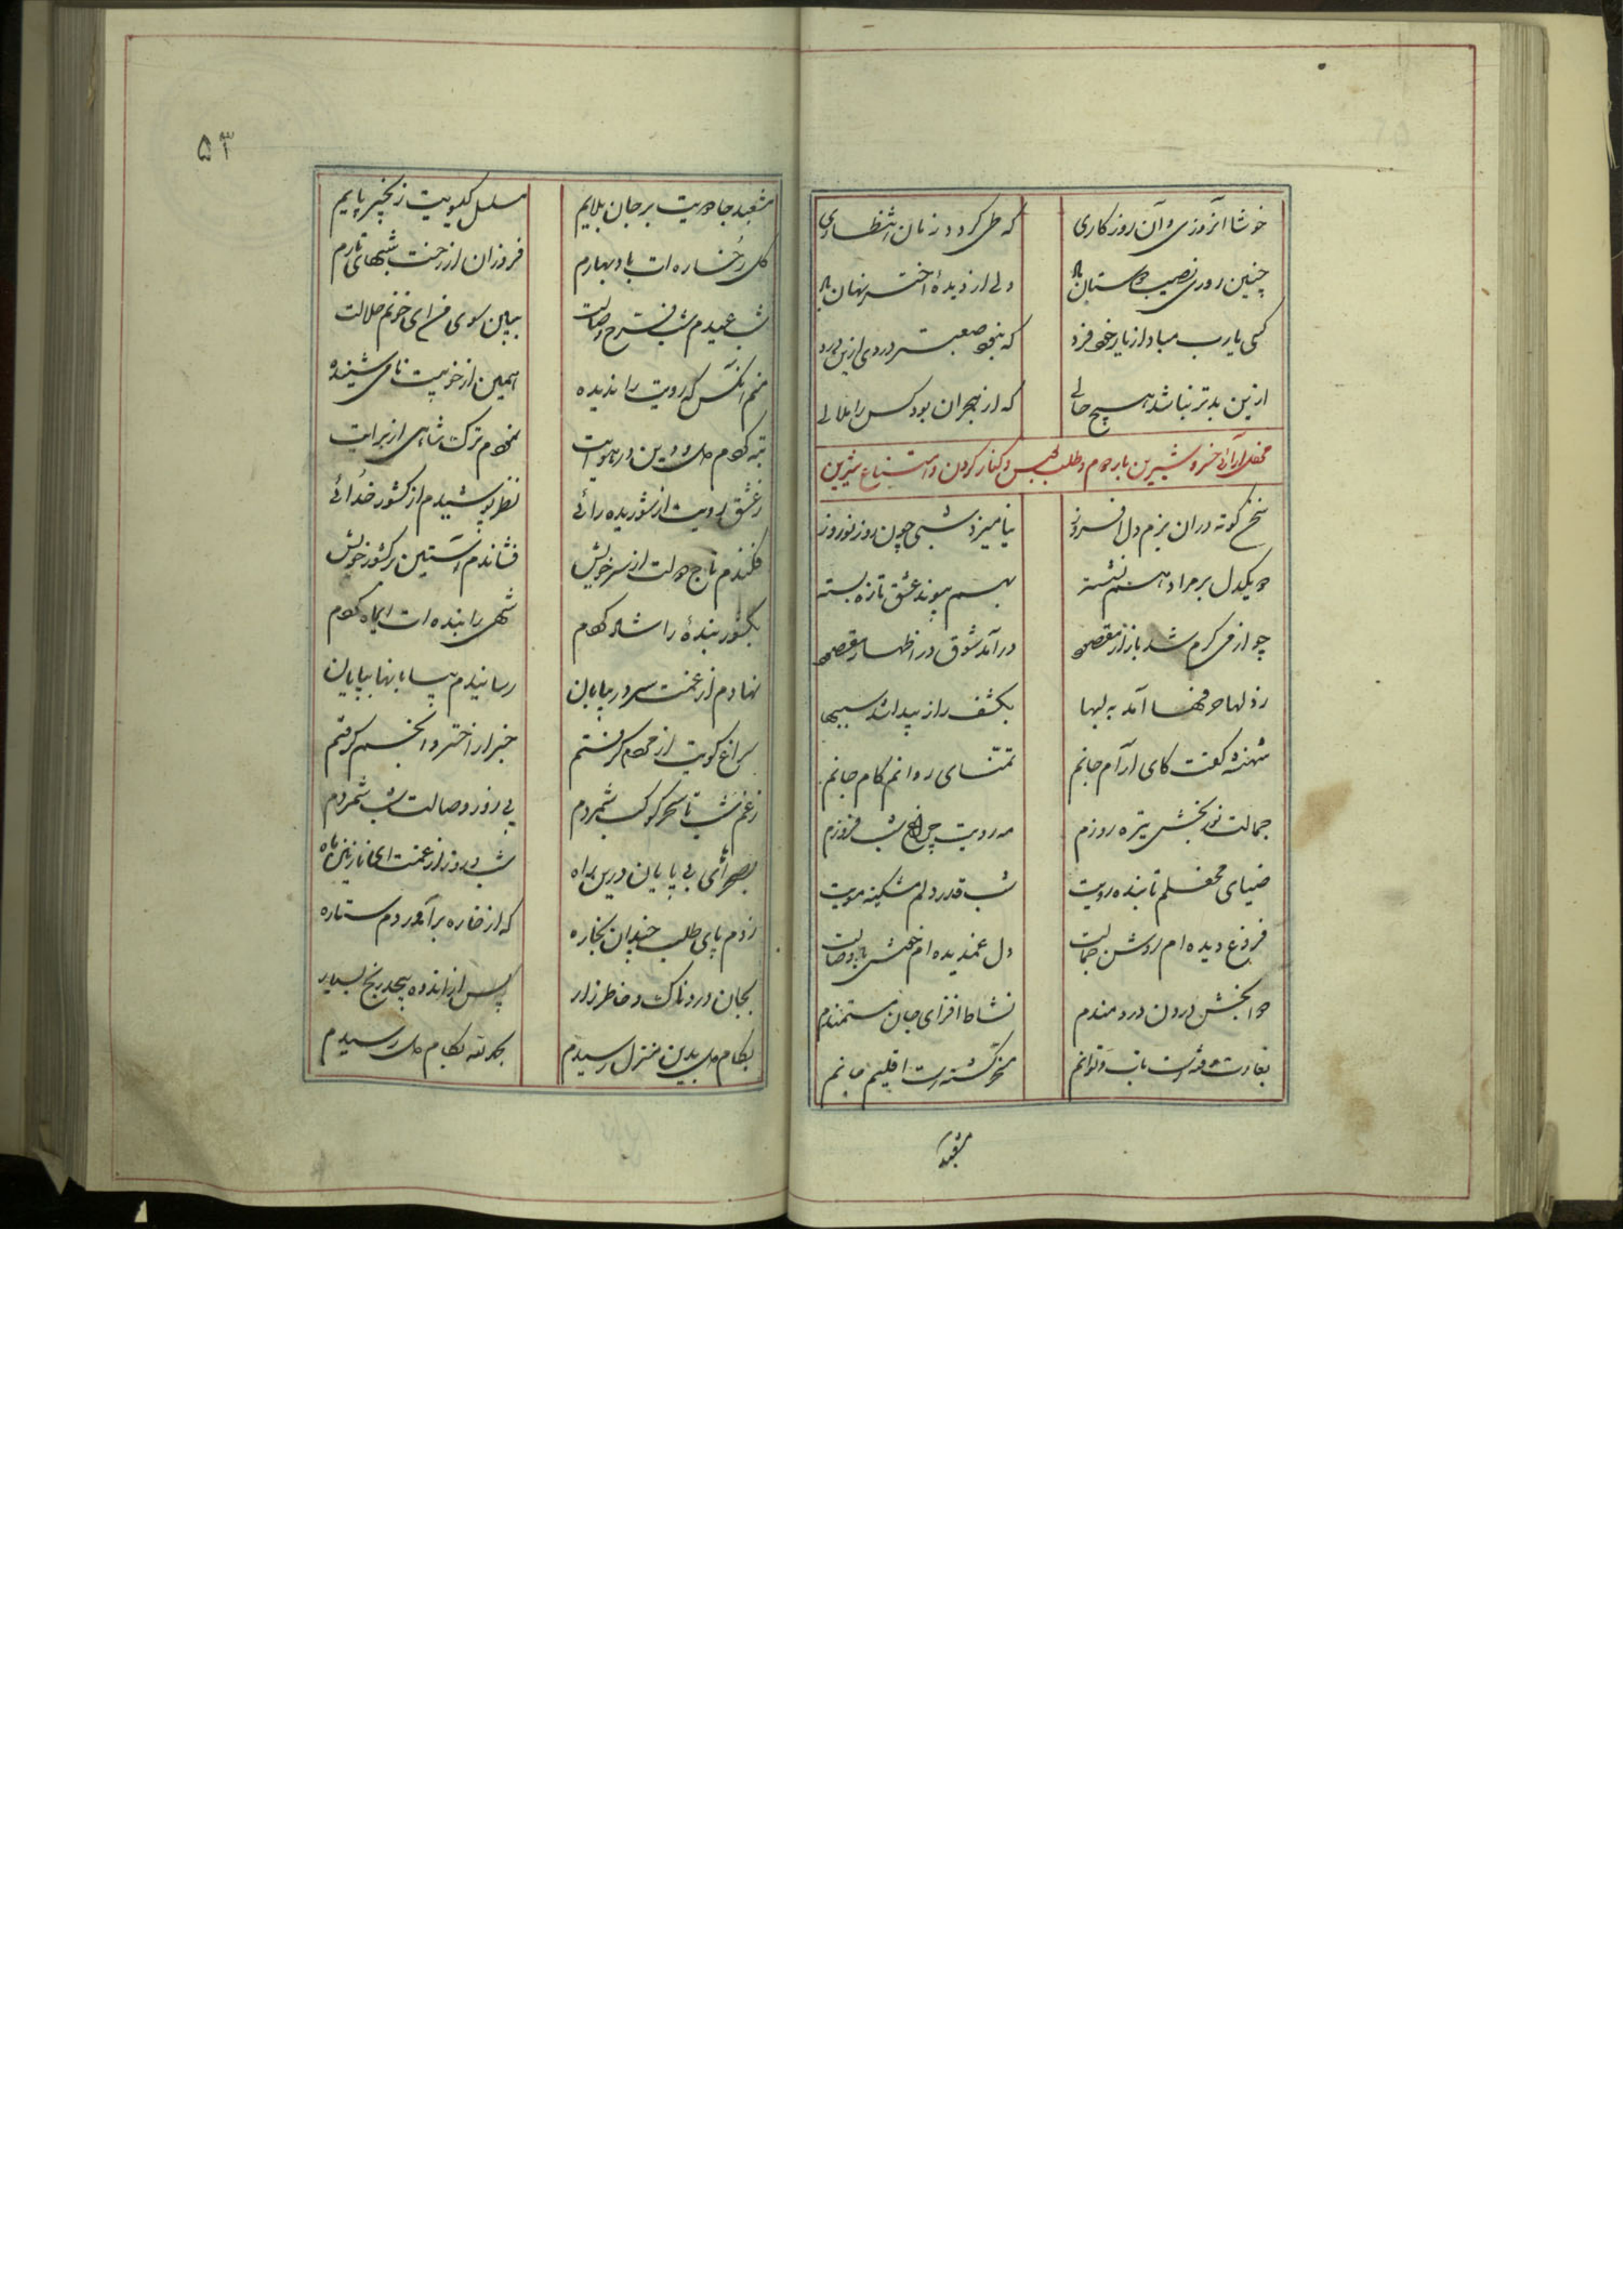 خوشا آنروزی و آن روزکاری که طی کردد زمان انتظاری
چنین روزی نصیب دوستان باد ولی از دیدهٔ اختر نهان باد
کسی یارب مباد از یار خود فرد که نبود صعبتر دردی ازین درد
ازین بدتر نباشد هیچ حالی که از هجران بود کس را ملالی
محفل آرائی خسرو و شیرین بار دوم و طلب بوس و کنار کردن و امتناع شیرین
سخن کوته در ان بزم دل افروز نیامیزد شبی چون روز نوروز
دو یکدل بر مراد هم نشسته بهم پیوند عشق تازه بسته
چو از می گرم شد بازار مقصود در آمد شوق در اظهار مقصود
ز دلها حرفها آمد به لبها بکشف راز پیدا شد سببها
شهنشه گفت کای آرام جانم تمنای روانم کام جانم
جمالت نور بخش تیره روزم مه رویت چراغ شب فروزم
ضیای محفلم تابنده رویت شب قدر دلم مشکینه مویت
فروغ دیده ام روشن جمالت دل غمدیده ام خوش با وصالت
دوا بخش درون دردمندم نشاط افزای جان مستمندم
بغارت داده ات تاب و توانم مسخر کشته ات اقلیم جانم
مشعبد
۵۳
مشعبد جادویت بر جان بلایم مسلسل کیسویت زنجیر پایم
کل رخساره ات باد بهارم فروزان از رخت شبهای تارم
شب عیدم شب فرخ وصالت ببین سوی من ای خونم حلالت
منم آنکس که رویت را ندیده همین از خوبیت نامی شنیده
تبه کردم دل و دین در هوایت نمودم ترک شاهی از برایت
ز عشق رویت از شوریده رائی نظر پوشیدم از کشور خدائی
فکندم تاج دولت از سر خویش فشاندم آستین بر کشور خویش
بکشور بندهٔ را شاه کردم شهی را بنده ات ایماه کردم
نهادم از غمت سر در بیابان رسانیدم بیابانها بپایان
سراغ کویت از مردم کرفتم خبر از اختر و انجم کرفتم
ز غم شب تا سحر کوکب شمردم پی روز وصالت شب شمردم
بصحرائی بی پایان درین راه شب و روز از غمت ای نازنین ماه
زدم پای طلب چندان بخاره که از خاره برآوردم ستاره
بجان دردناک و خاطر زار پس از اندوه بیحد رنج بسیار
بکام دل بدین منزل رسیدم بحمد لله بکام دل رسیدم